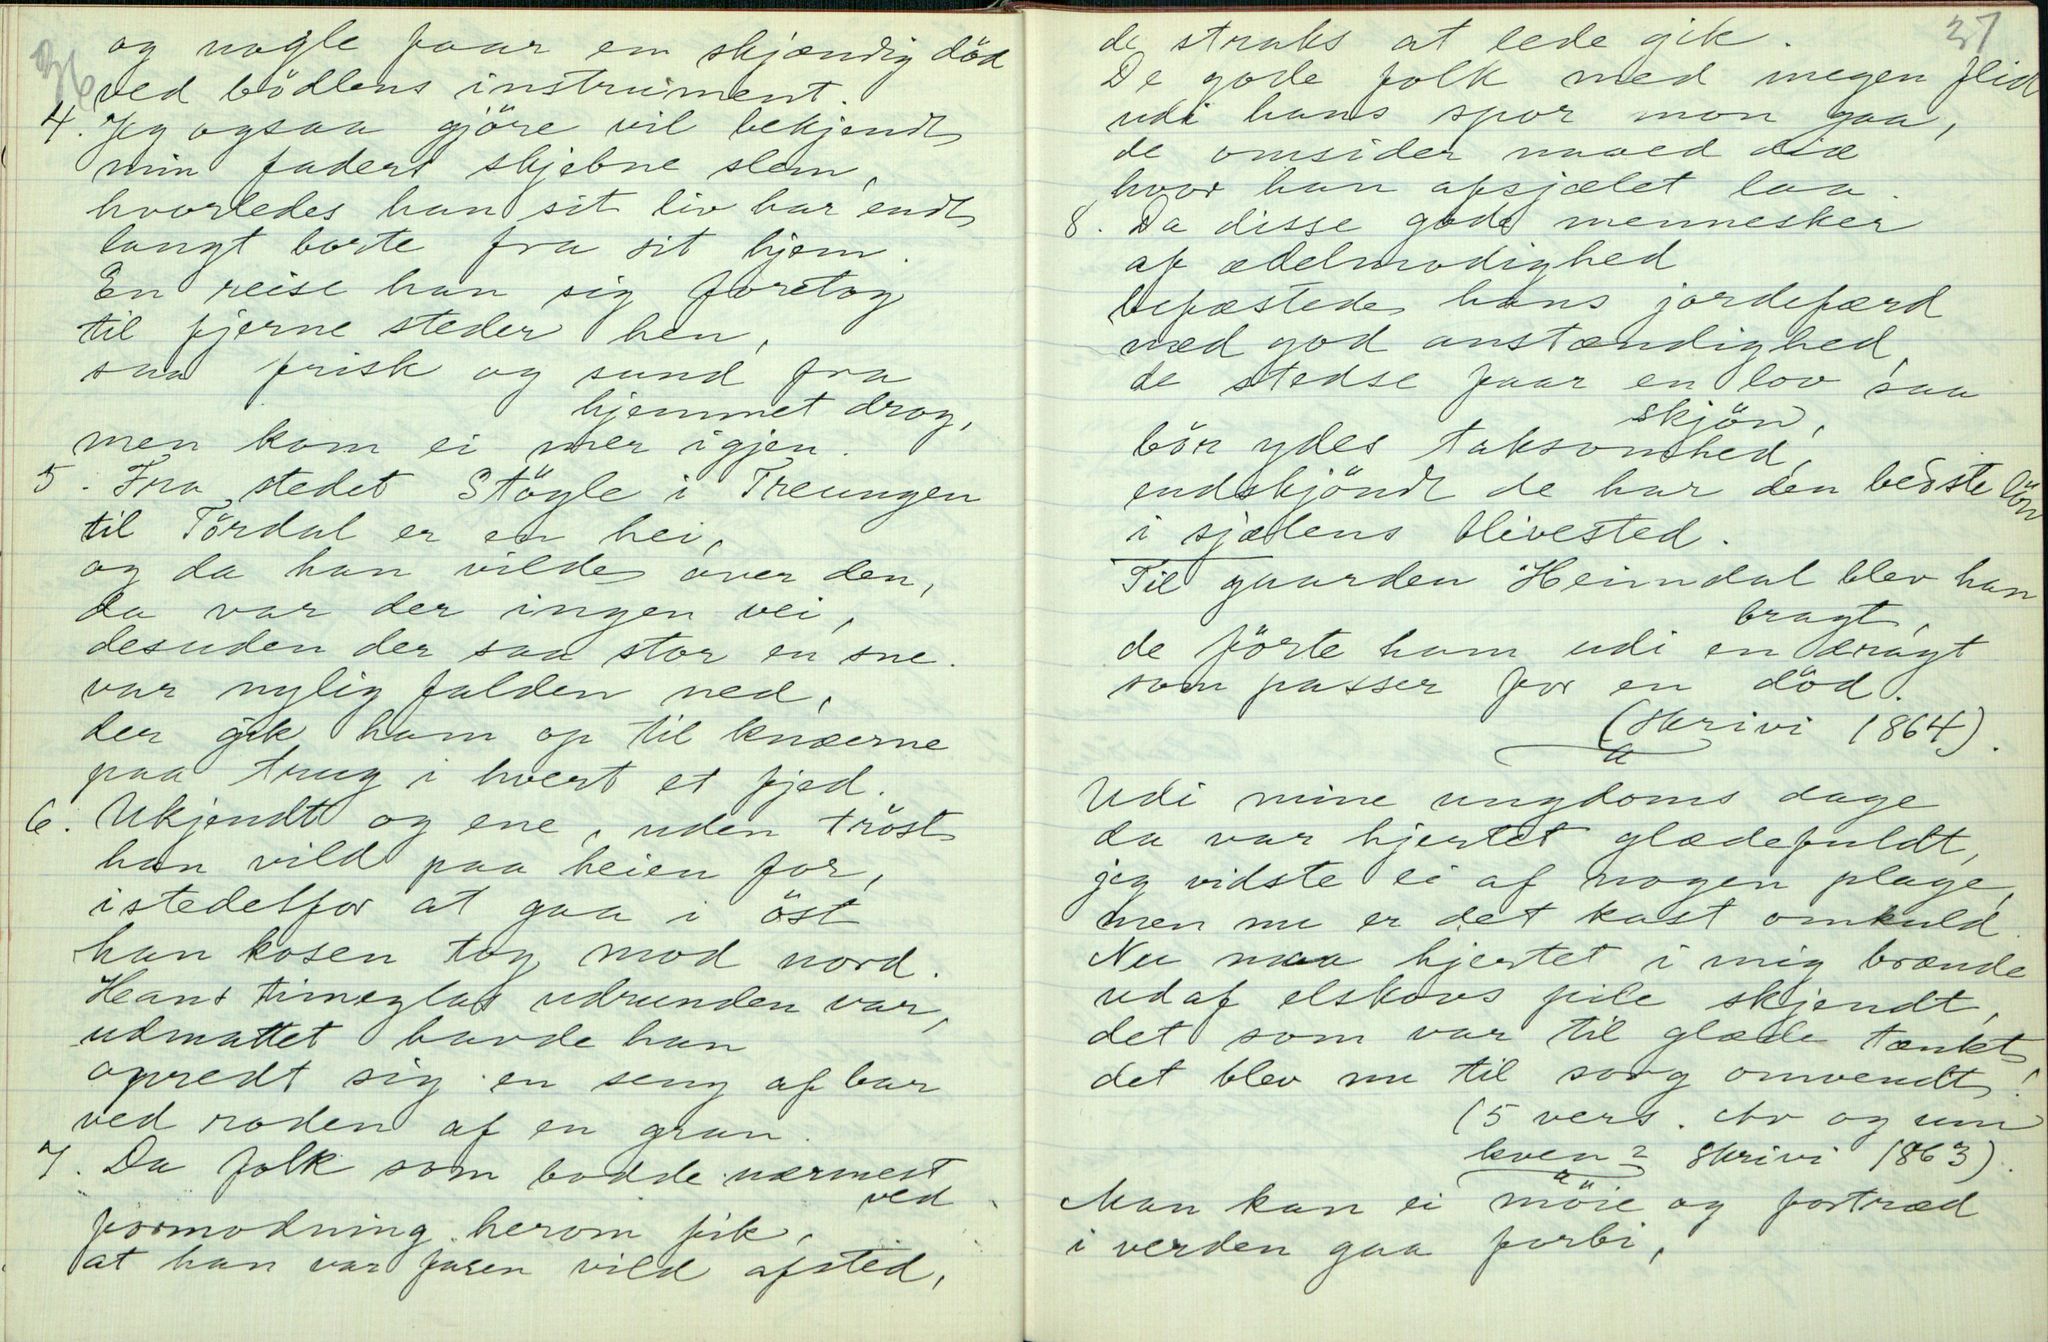 36
og nogle faar en skjændig död
ved bödlens instrument.
4. Jeg ogsaa gjöre vil bekjendt
min faders skjebne slem,
hvorledes han sit liv har endt
langt borte fra sit hjem.
En reise han sig foretog
til fjerne steder hen,
saa frisk og sund fra
hjemmet drog,
men kom ei mer igjen.
5. Fra stedet Stögle i Treungen
til Tördal er en hei,
og da han vilde over den,
da var der ingen vei,
desuden der saa stor en sne.
var nylig falden ned,
der gik ham op til knæerne
paa trug i hvert et fjed.
6. Ukjendt og ene, uden tröst
han vild paa heien for,
istedetfor at gaa i öst
han kosen tog mod nord.
Hans timeglas udrunden var,
udmattet havde han
opredt sig en seng af bar
ved roden af en gran.
7. Da folk som bodde nærmest
ved
formodning herom fik,
at han var faren vild afsted,
37
de straks at lede gik.
De gode folk med megen flid
udi hans spor mon gaa,
de omsider naaed did
hvor han afsjælet laa.
8. Da disse gode mennesker
af ædelmodighed
befæstede hans jordefærd
med god anstændighed,
de stedse faar en lov saa
skjön,
bör ydes taksomhed,
endskjöndt de har den bedste lön
i sjælens blivested.
Til gaarden Heimdal blev han
bragt,
de förte ham udi en dragt
som passer for en död.
(Skrivi 1864).
Udi mine ungdoms dage
da var hjertet glædefuldt,
jeg vidste ei af nogen plage,
men nu er det kast omkuld.
Nu maa hjertet i mig brænde
udaf elskovs pile skjendt,
det som var til glæde tænkt,
det blev nu til sorg omvendt!
(5 vers. Av og um
kven? Skrivi 1863).
Man kan ei möie og fortræd
i verden gaa forbi,